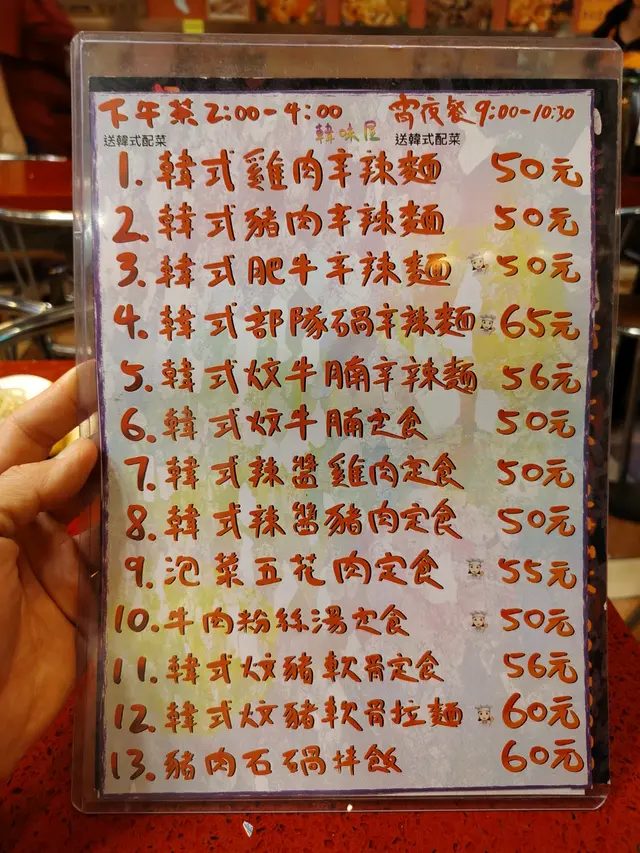 下午茶2:00-4:00 宵夜餐9:00-10:30
送韓式配菜 韓味屋 送韓式配菜
1. 韓式雞肉辛辣麵 50元
2. 韓式豬肉辛辣麵 50元
3. 韓式肥牛辛辣麵 50元
4. 韓式部隊鍋辛辣麵 65元
5. 韓式炆牛腩辛辣麵 56元
6. 韓式炆牛腩定食 50元
7. 韓式辣醬雞肉定食 50元
8. 韓式辣醬豬肉定食 50元
9. 泡菜五花肉定食 55元
10. 牛肉粉絲湯定食 50元
11. 韓式炆豬軟骨定食 56元
12. 韓式炆豬軟骨拉麵 60元
13. 豬肉石鍋拌飯 60元